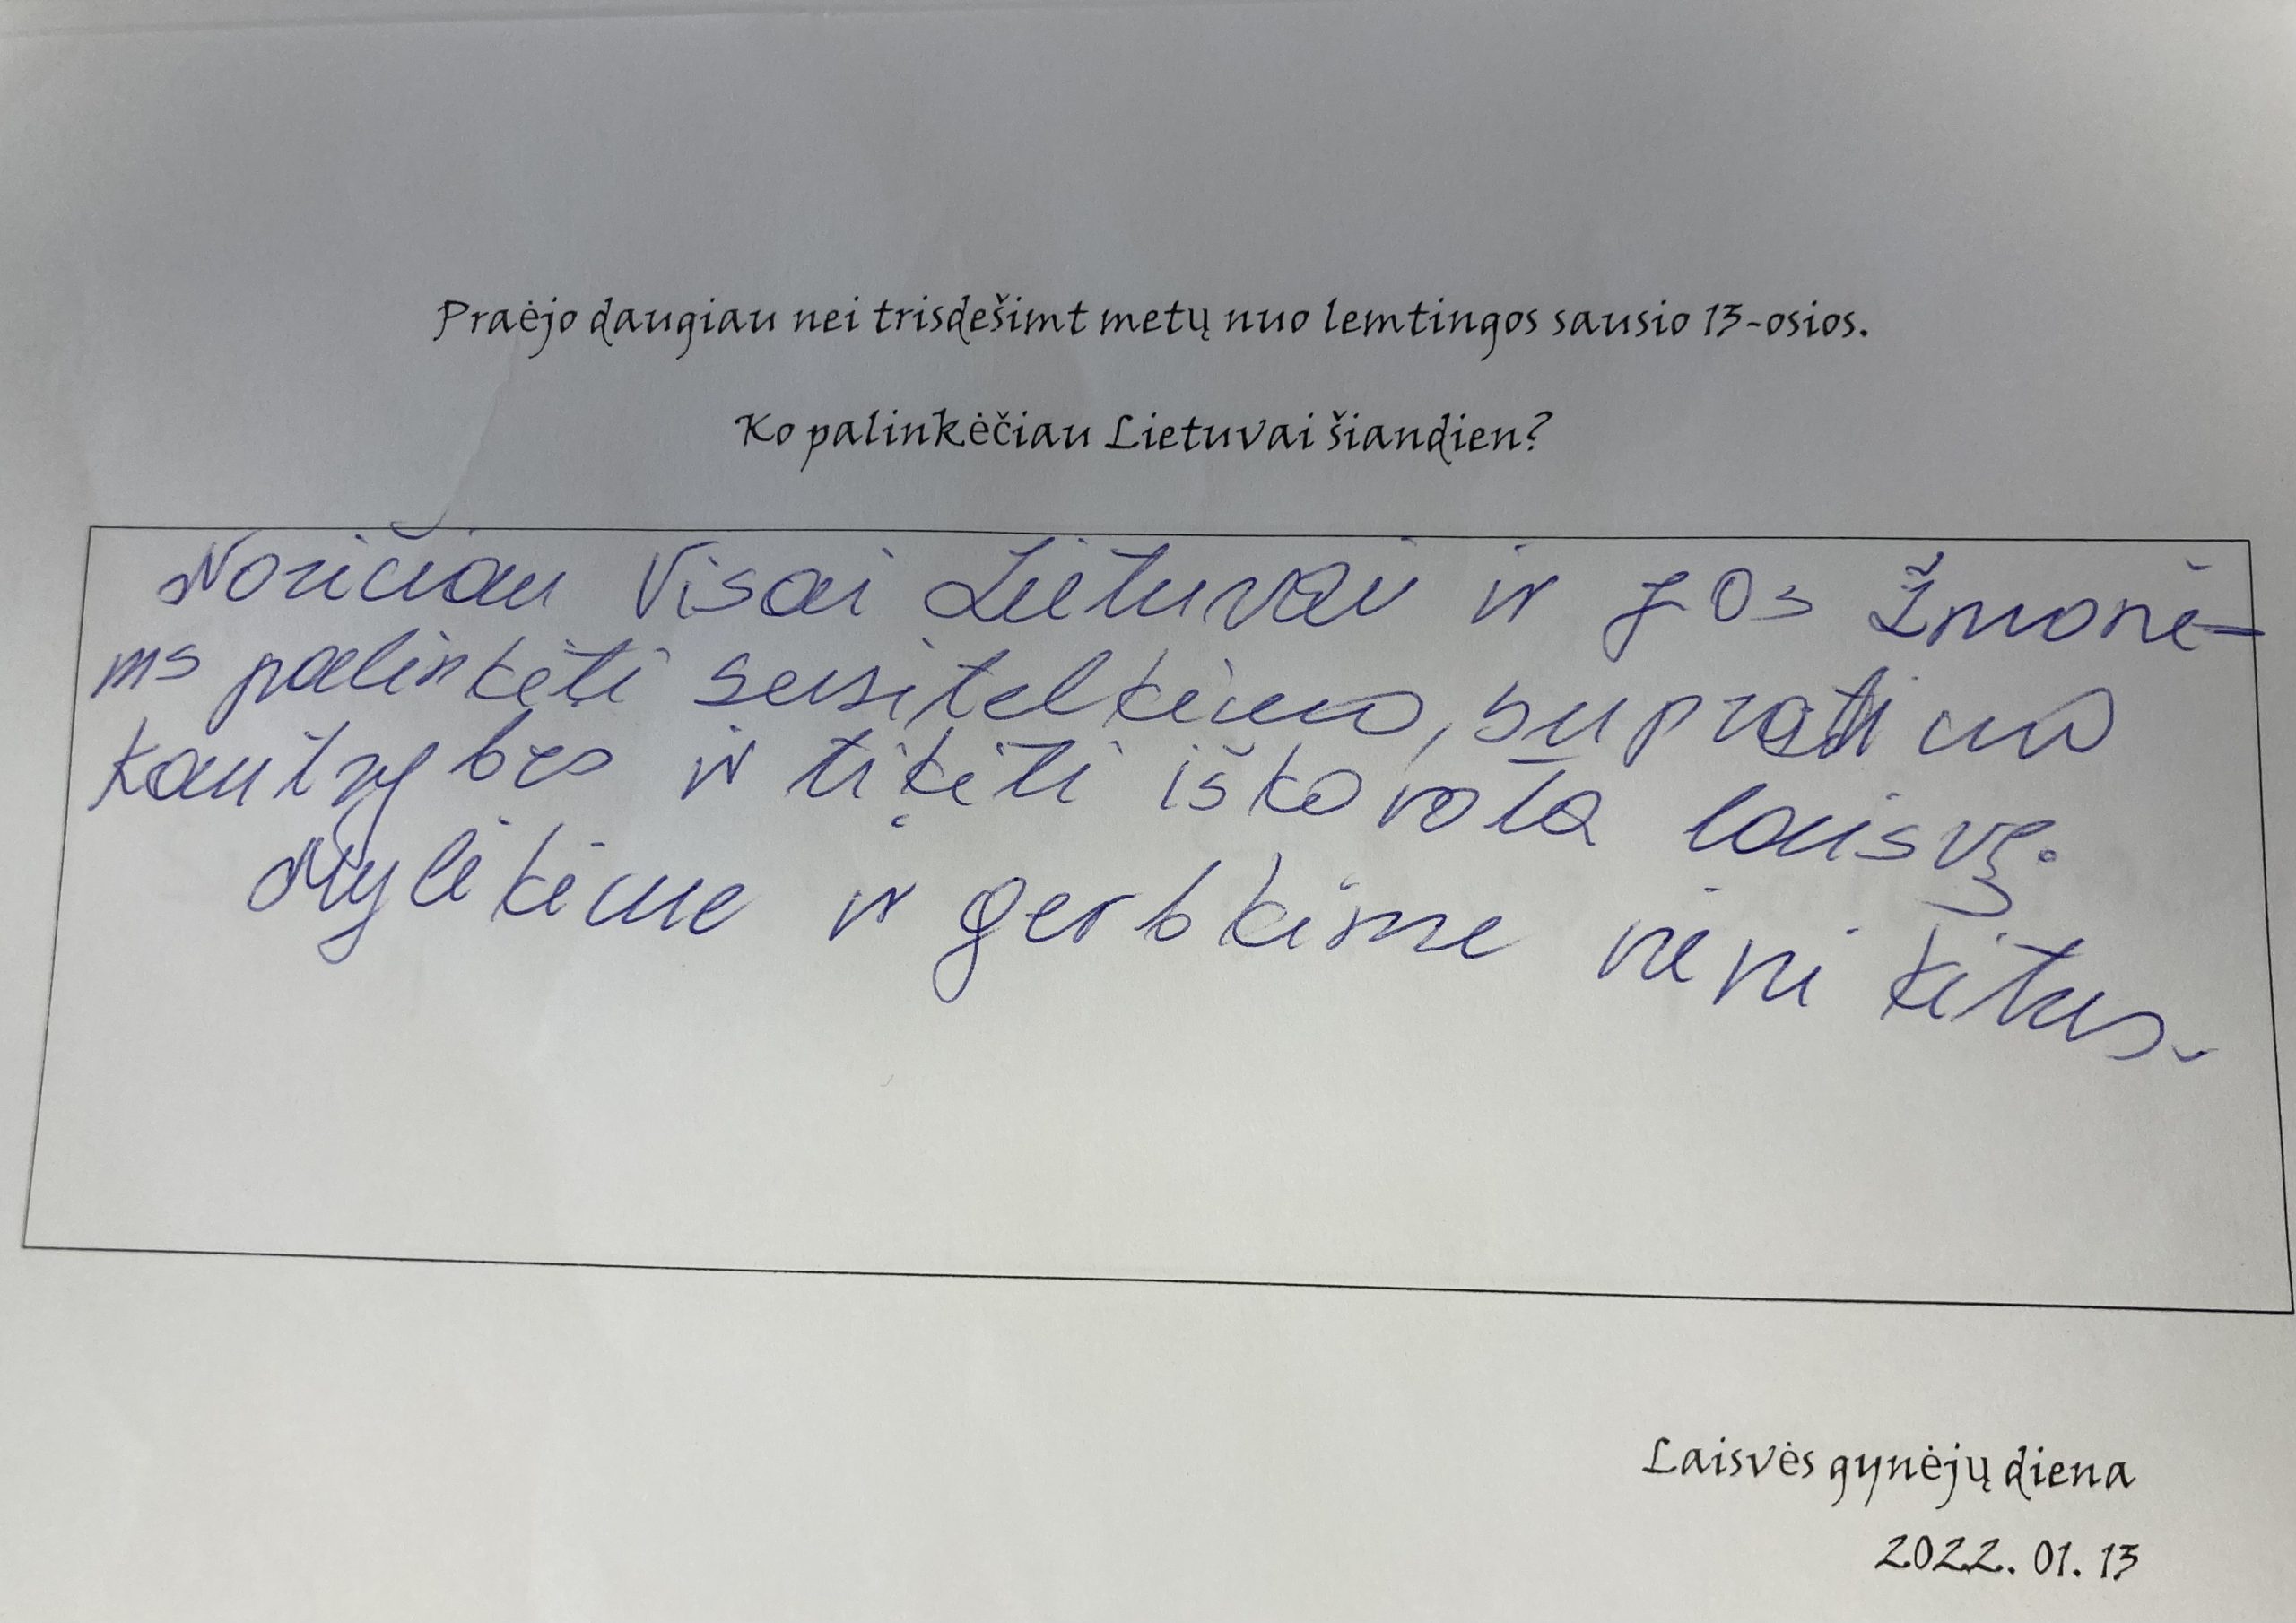 Praėjo daugiau nei trisdešimt metų nuo lemtingos sausio 13-osios.
Ko palinkėčiau Lietuvai šiandien?
Noričiau Visai Lietuvai ir jos žmonė-
ms palinkėti susitelkimo, supratimo
kantrybės ir tikėti iškovota laisvę.
Mylėkime ir gerbkime vieni kitus.
Laisvės gynėjų diena
2022. 01. 13